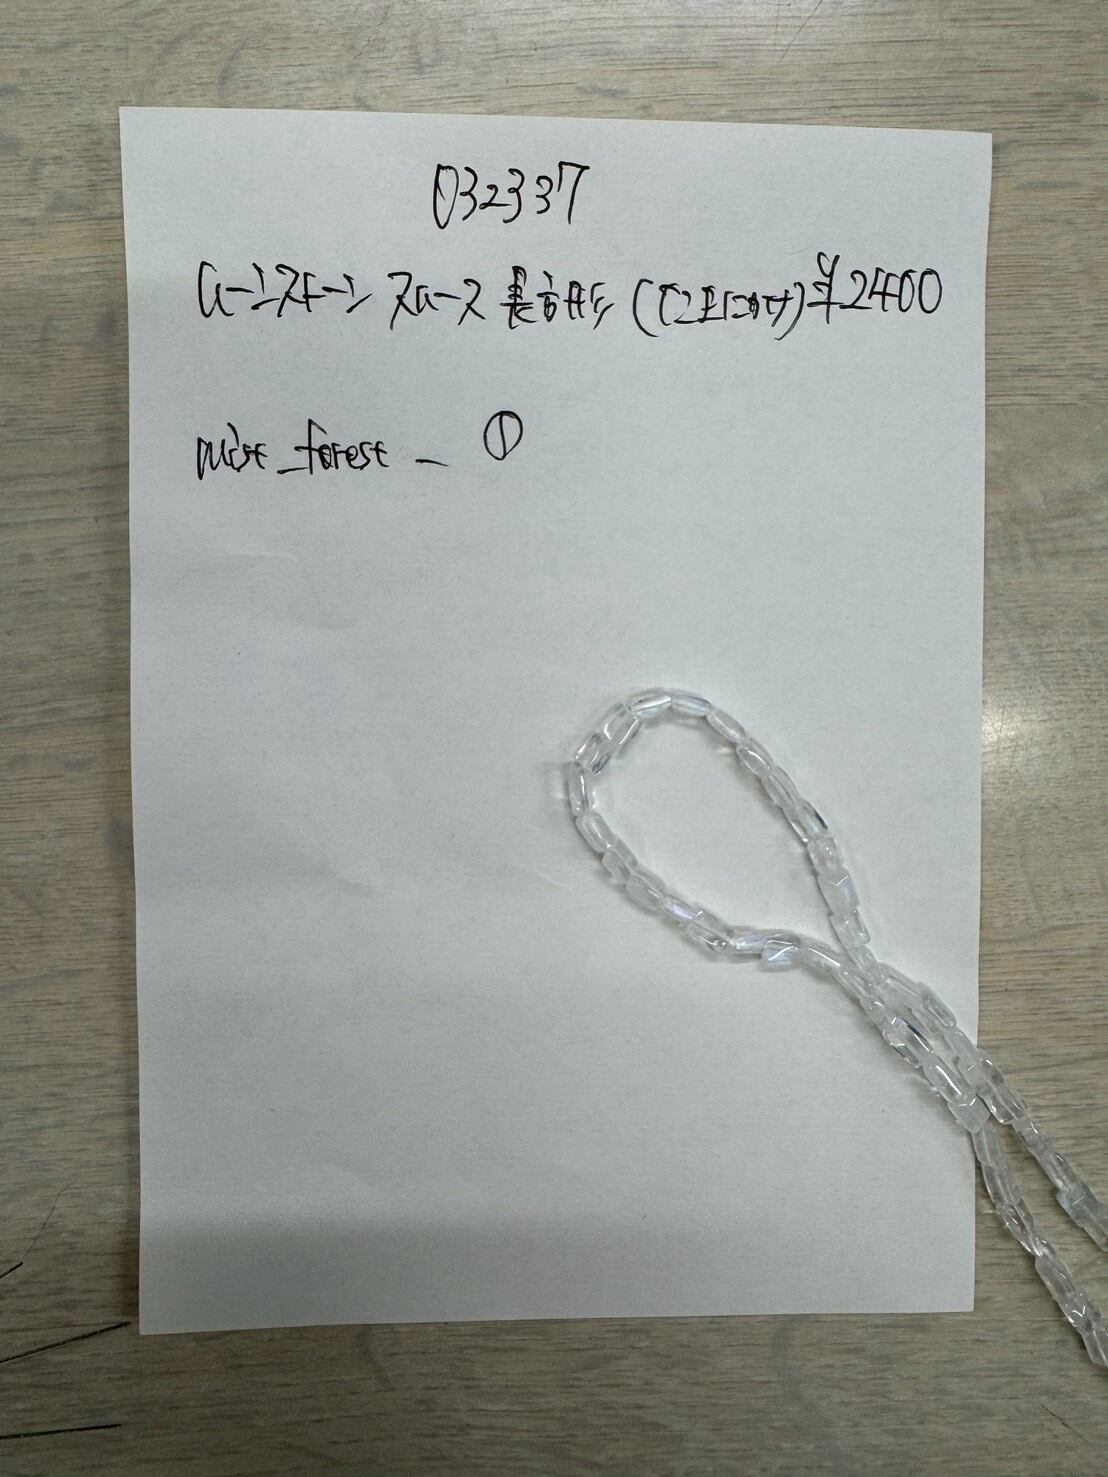 032337
ムーンストーン スムース 長方形 ¥2400
mist_forest_ ①